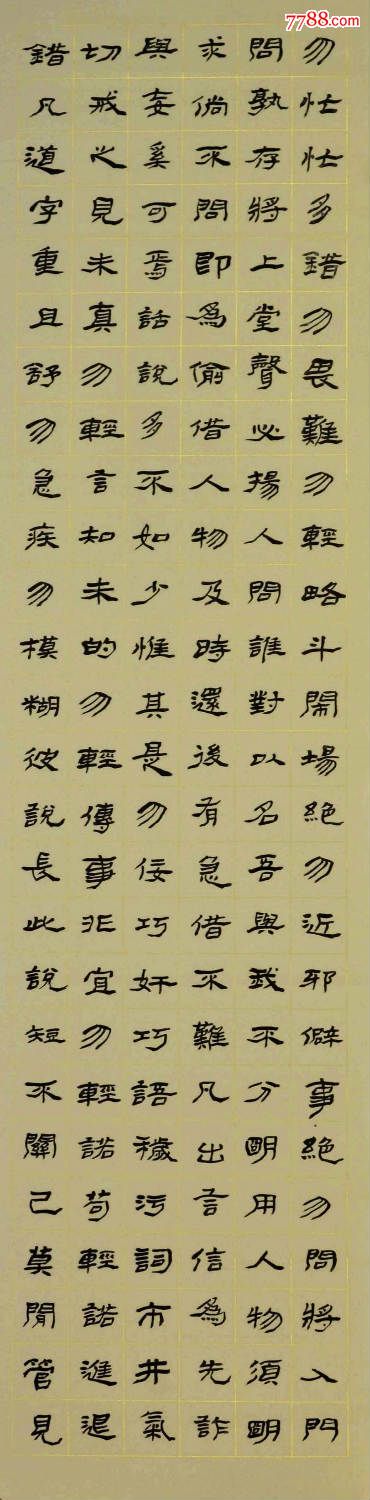 7788.com
中国收藏热线
勿忙忙多錯勿畏難勿輕略斗鬧場絕勿近邪僻事絕勿問將入門
問孰存將上堂聲必揚人問誰對以名吾與我不分明用人物須明
求倘不問即為偷借人物及時還後有急借不難凡出言信為先詐
與妄奚可焉話說多不如少惟其是勿佞巧奸巧語穢污詞市井氣
切戒之見未真勿輕言知未的勿輕傳事非宜勿輕諾苟輕諾進退
錯凡道字重且舒勿急疾勿模糊彼說長此說短不關己莫閒管見